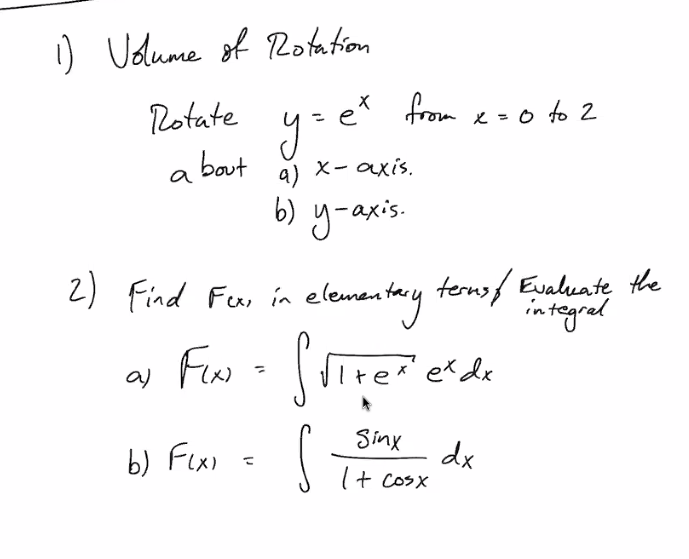 1) Volume of Rotation
Rotate y = e^x from x = 0 to 2
about a) x-axis.
b) y-axis.
2) Find F(x) in elementary terms / Evaluate the
integral
a) F(x) = ∫ √(1+e^x) e^x dx
b) F(x) = ∫ sinx / (1 + cosx) dx